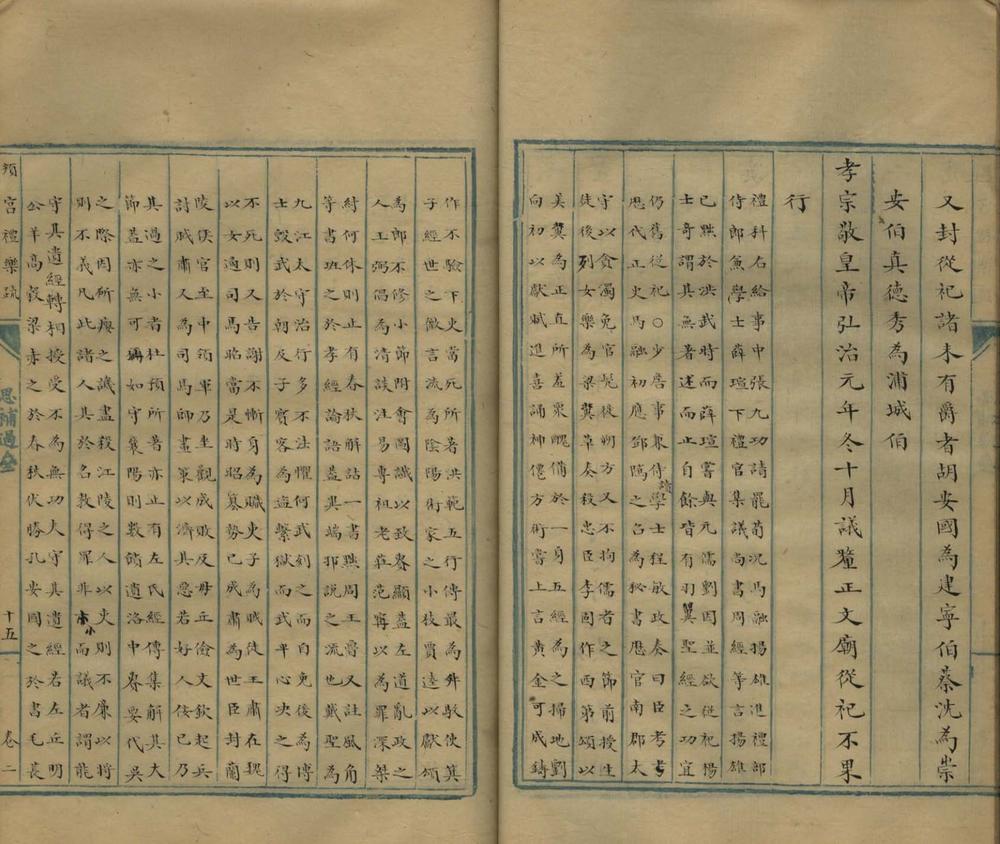 又封從祀諸未有爵者胡安國為建寧伯蔡沈為崇
安伯真德秀為浦城伯
孝宗敬皇帝弘治元年冬十月議釐正文廟從祀不果
行
禮科右給事中張九功請罷荀況馬融揚雄進禮部
侍郎兼學士薛瑄下禮官集議尚書周經等言揚雄
已黜於洪武時而薛瑄嘗與元儒劉因並欲從祀楊
士奇謂其無著述而止自餘皆有羽翼聖經之功宜
仍舊從祀○少詹事兼侍讀學士程敏政奏曰臣考
歷代正史馬融初應鄧隲之召為秘書歷官南郡太
守以貪濁免官髠徙朔方又不拘儒者之節前授生
徒後列女樂為梁冀草奏殺忠臣李固作西第頌以
美冀為正直所羞衆醜備於一身五經為之掃地劉
向初以獻賦進喜誦神僊方術嘗上言黃金可成鑄
作不驗下吏當死所著洪範五行傳最為舛駁使箕
子經世之微言流為陰陽術家之小技賈逵以獻頌
為郎不修小節附會圖讖以致貴顯蓋左道亂政之
人王弼倡為清談注易專祖老莊范寗以為罪深桀
紂何休則止有春秋解詁一書黜周王魯又註風角
等書班之於孝經論語蓋異端邪說之流也戴聖為
九江太守治行多不法懼何武刻之而自免後為博
士毀武於朝及子賓客為盜繫獄而武平心决之得
不死則又告謝不慚身為贓吏子為賊徒王肅在魏
以女適司馬昭當是時昭簒勢已成肅為世臣封蘭
陵侯官至中領軍乃坐觀成敗及毋丘儉文欽起兵
討賊肅又為司馬師畫策以濟其惡若好人佞己乃
其過之小者杜預所著亦止有左氏經傳集解其大
節蓋亦無可稱如守襄陽則數饋遺洛中貴要代吳
之際因所癭之譏盡殺江陵之人以吏則不廉以將
則不義凡此諸人其於名教得罪非小而議者謂龍
守其遺經轉相授受不為無功夫守其遺經若左丘明
公羊高穀梁赤之於春秋伏勝孔安國之於書毛萇
頖宮禮樂疏
思補過齋
十五
卷二